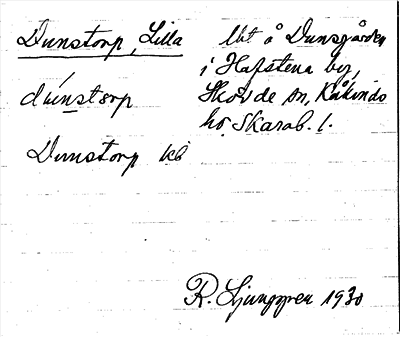 Dunstorp, Lilla
lht å Dunsgården
i Hafstena by,
Skövde sn, Kåkinds
hd Skarab. l.
dúnstorp
Dunstorp kb
R. Ljunggren 1930